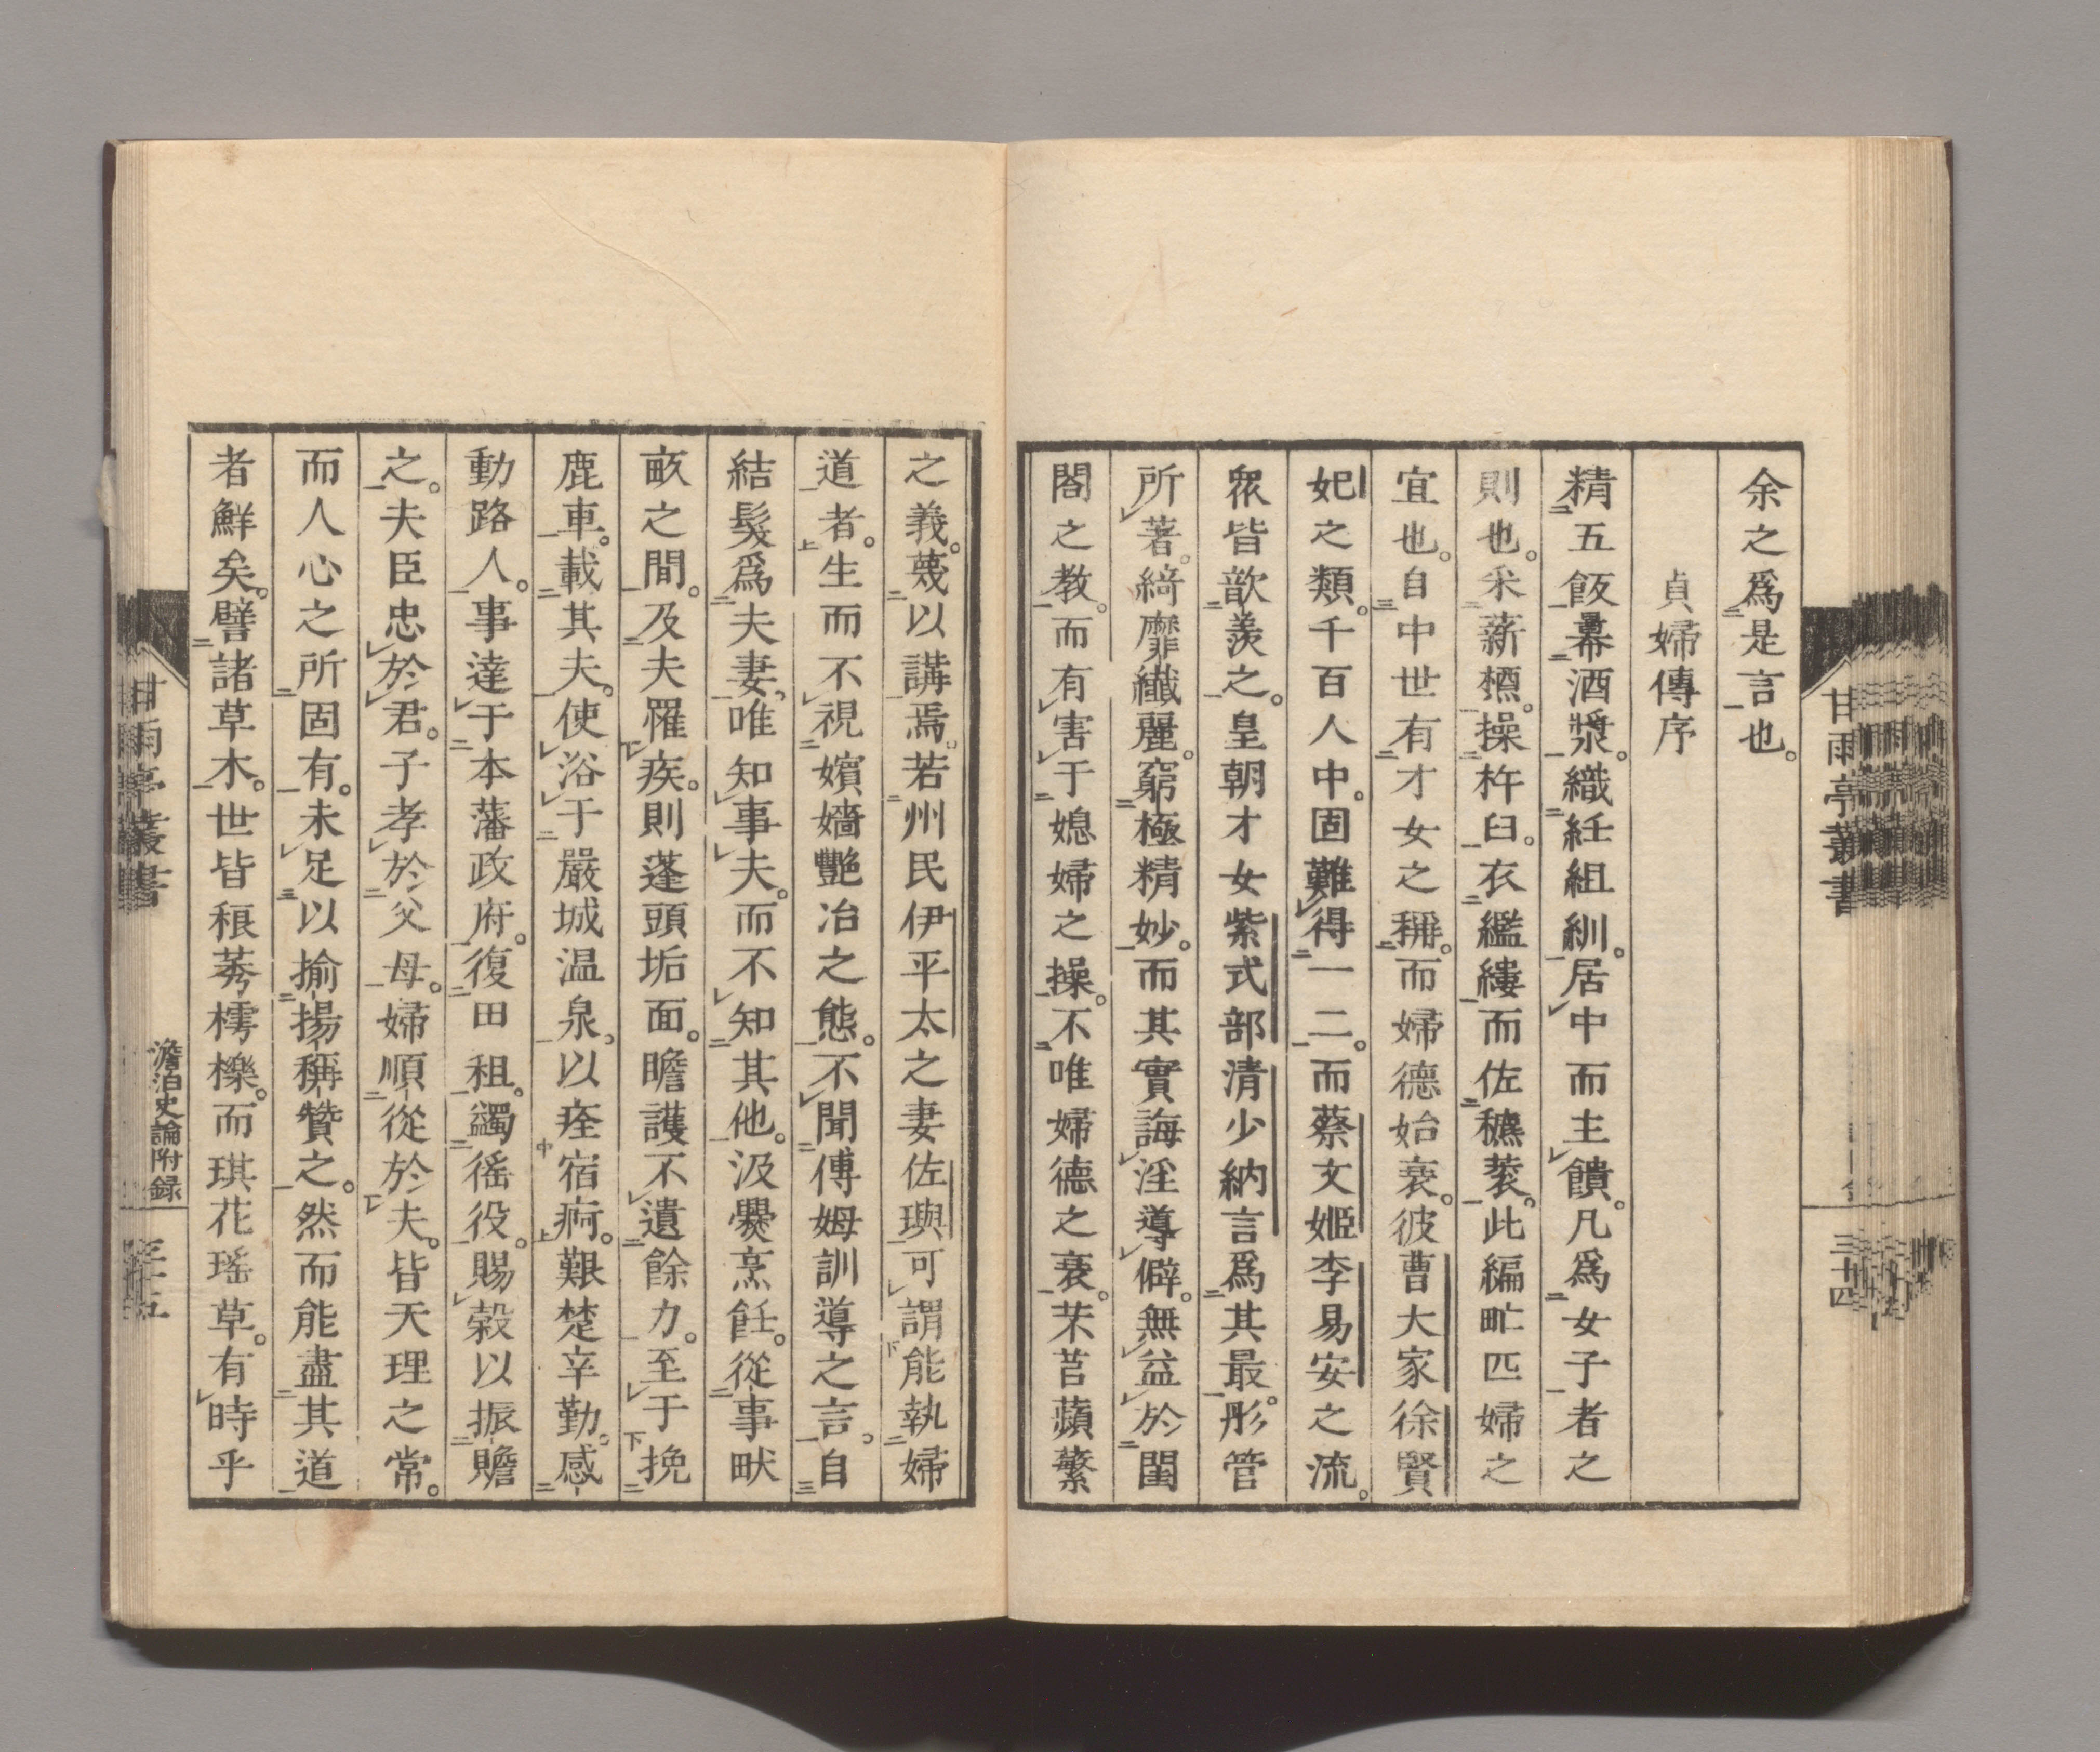 余之爲是言也。
貞婦傳序
精五飯冪酒漿。織紝組紃。居中而主饋。凡爲女子者之
則也。采薪櫄。操杵臼。衣繿縷而佐穮蓘。此編甿匹婦之
宜也。自中世有才女之稱。而婦德始衰。彼曹大家徐賢
妃之類。千百人中。固難得一二。而蔡文姬李易安之流。
衆皆歆羨之。皇朝才女紫式部清少納言爲其最。彤管
所著。綺靡纖麗。窮極精妙。而其實誨淫導僻。無益於閨
閤之教。而有害于媳婦之操。不唯婦德之衰。芣苢蘋蘩
之義。蔑以講焉。若州民伊平太之妻佐璵可謂能執婦
道者。生而不視嬪嬙艷冶之態。不聞傅姆訓導之言。自
結髮爲夫妻、唯知事夫。而不知其他。汲爨烹飪。從事畎
畝之間。及夫罹疾。則蓬頭垢面。瞻護不遺餘力。至于挽
鹿車。載其夫。使浴于嚴城温泉。以痊宿痾。艱楚辛勤。感
動路人。事達于本藩政府。復田租。蠲徭役。賜穀以振贍
之。夫臣忠於君。子孝於父母。婦順從於夫。皆天理之常。
而人心之所固有。未足以揄揚稱贊之。然而能盡其道
者鮮矣。譬諸草木。世皆稂莠樗櫟。而琪花瑤草。有時乎
甘雨亭叢書
三十四
甘雨亭叢書
澹泊史論附録
三十五